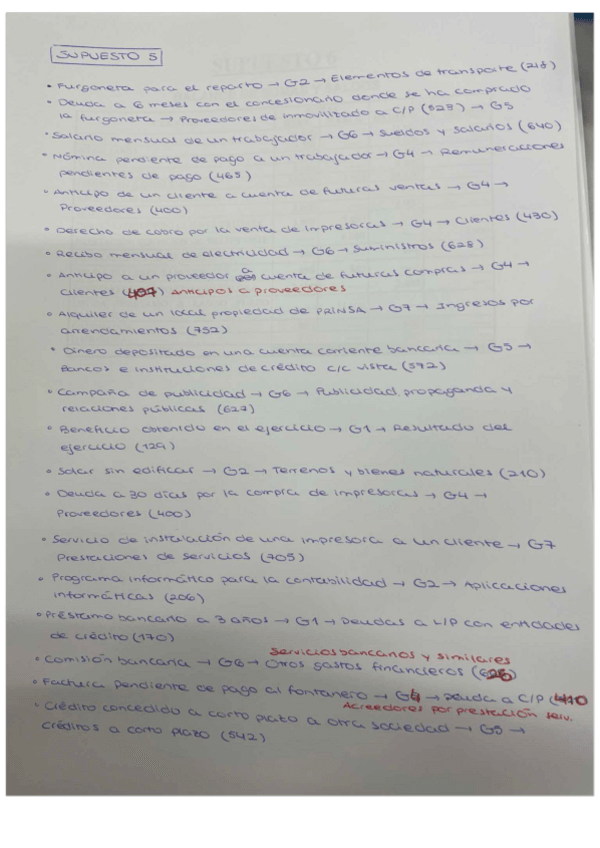 SUPUESTO 5
• Furgoneta para el reparto → G2 → Elementos de transporte (218)
• Deuda a 6 meses con el concesionario donde se ha comprado
la furgoneta → Proveedores de inmovilizado a C/P (523) → G5
• Salario mensual de un trabajador → G6 → Sueldos y salarios (640)
• Nómina pendiente de pago a un trabajador → G4 → Remuneraciones
pendientes de pago (465)
• Anticipo de un cliente a cuenta de futuras ventas → G4 →
Proveedores (400)
• Derecho de cobro por la venta de impresoras → G4 → Clientes (430)
• Recibo mensual de electricidad → G6 → Suministros (628)
• Anticipo a un proveedor a cuenta de futuras compras → G4 →
Clientes (407) Anticipos a proveedores
• Alquiler de un local propiedad de PRINSA → G7 → Ingresos por
arrendamientos (752)
• Dinero depositado en una cuenta corriente bancaria → G5 →
Bancos e instituciones de crédito c/c vista (572)
• Campaña de publicidad → G6 → Publicidad, propaganda y
relaciones públicas (627)
• Beneficio obtenido en el ejercicio → G1 → Resultado del
ejercicio (129)
• Solar sin edificar → G2 → Terrenos y bienes naturales (210)
• Deuda a 30 días por la compra de impresoras → G4 →
Proveedores (400)
• Servicio de instalación de una impresora a un cliente → G7
Prestaciones de servicios (705)
• Programa informático para la contabilidad → G2 → Aplicaciones
informáticas (206)
• Préstamo bancario a 3 años → G1 → Deudas a L/P con entidades
de crédito (170)
Servicios bancarios y similares
• Comisión bancaria → G6 → Otros gastos financieros (626)
• Factura pendiente de pago al fontanero → G4 → Deuda a C/P (410
Acreedores por prestación serv.
• Crédito concedido a corto plazo a otra sociedad → G5 →
Créditos a corto plazo (542)